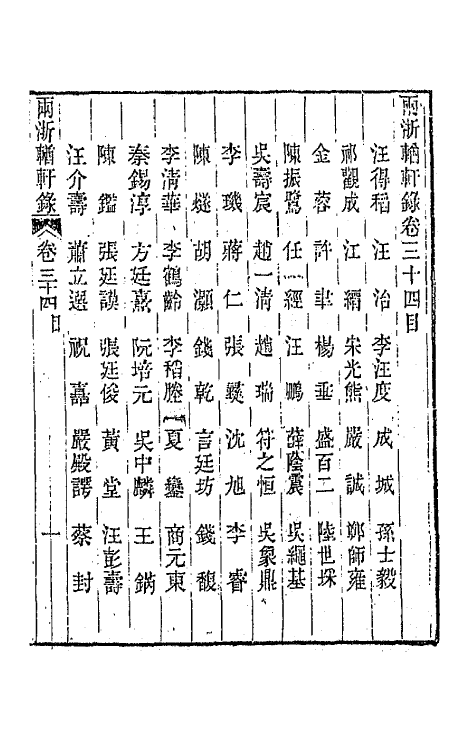 兩浙輶軒錄卷三十四目
汪得稻 汪治 李汪度 成城 孫士毅
祁觀成 江 宋光熊 嚴誠 鄭師雍
金蓉 許 楊垂 盛百二 陸世埰
陳振鷺 任一經 汪鵬 薛陰震 吳繩基
吳壽宸 趙一清 趙瑞 符之恒 吳象鼎
李璣 蔣仁 張 沈旭 李睿
陳 胡灝 錢乾 言廷坊 錢馥
李清華 李鶴齡 李稻塍 夏鑾 商元東
秦錫淳 方廷熹 阮培元 吳中麟 王鏋
陳鑑 張廷謨 張廷俊 黃堂 汪彭壽
汪介壽 蕭立選 祝嘉 嚴殿諤 蔡封
兩浙輶軒錄 卷三十四目 一